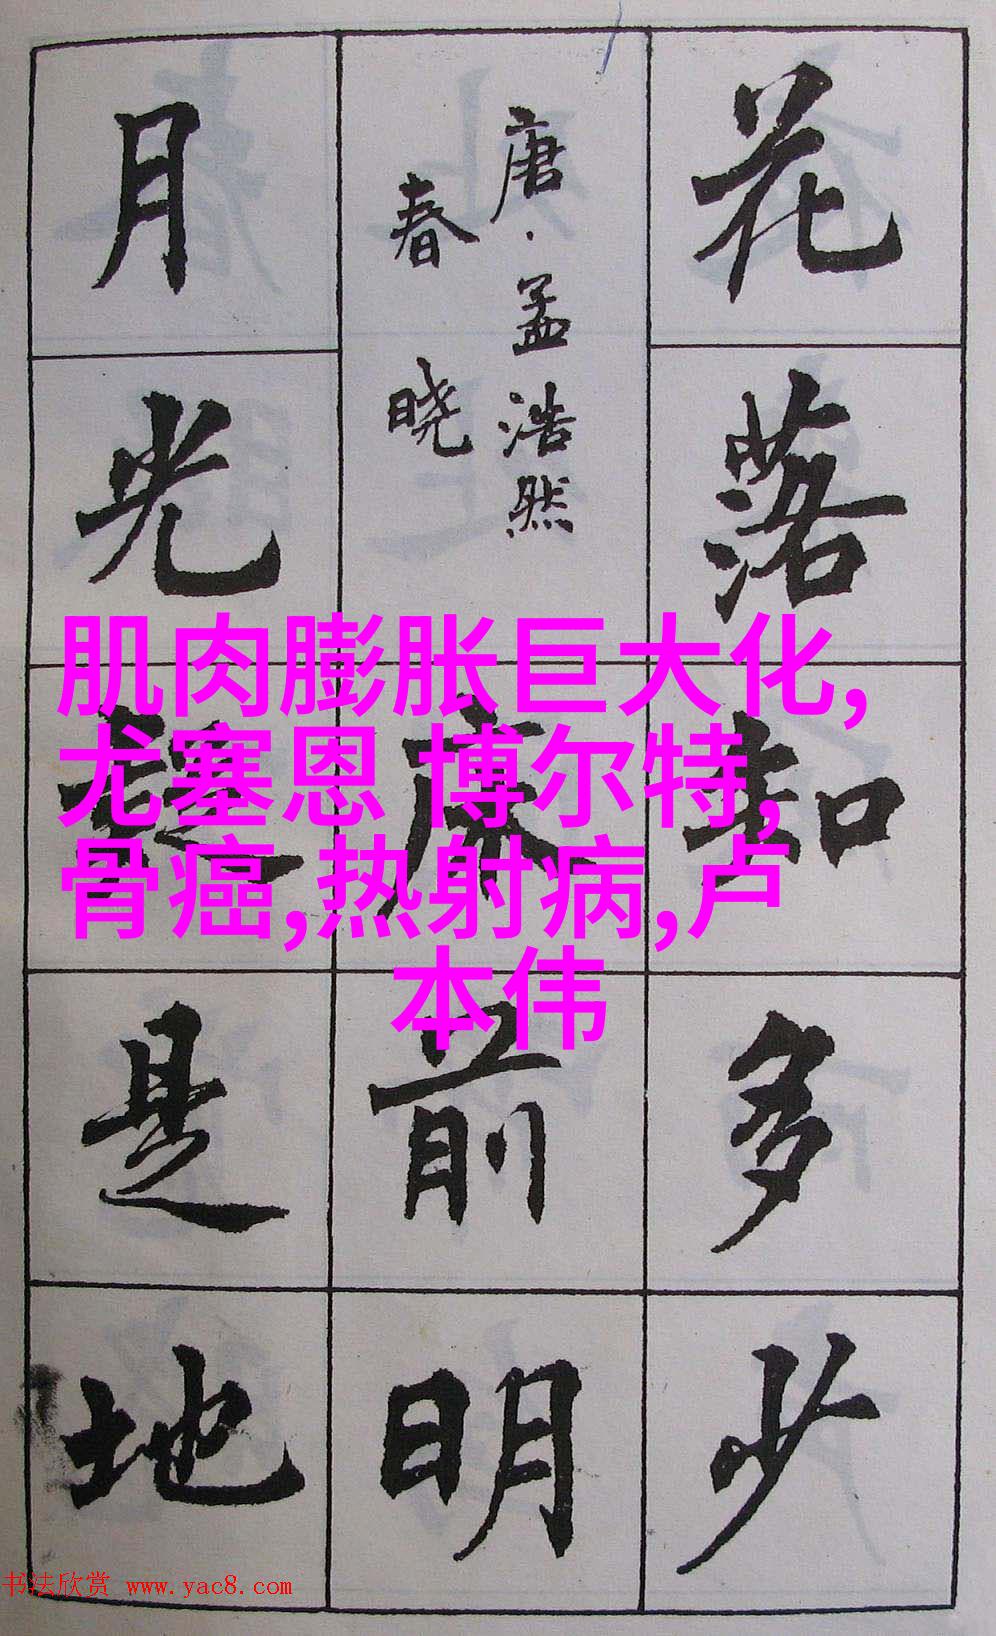 花落知多少
唐·孟浩然
春晓
床前明
月光疑是地
肌肉膨胀巨大化,
尤塞恩 博尔特,
骨癌,热射病,卢
本伟
书法欣赏 www.yac8.com